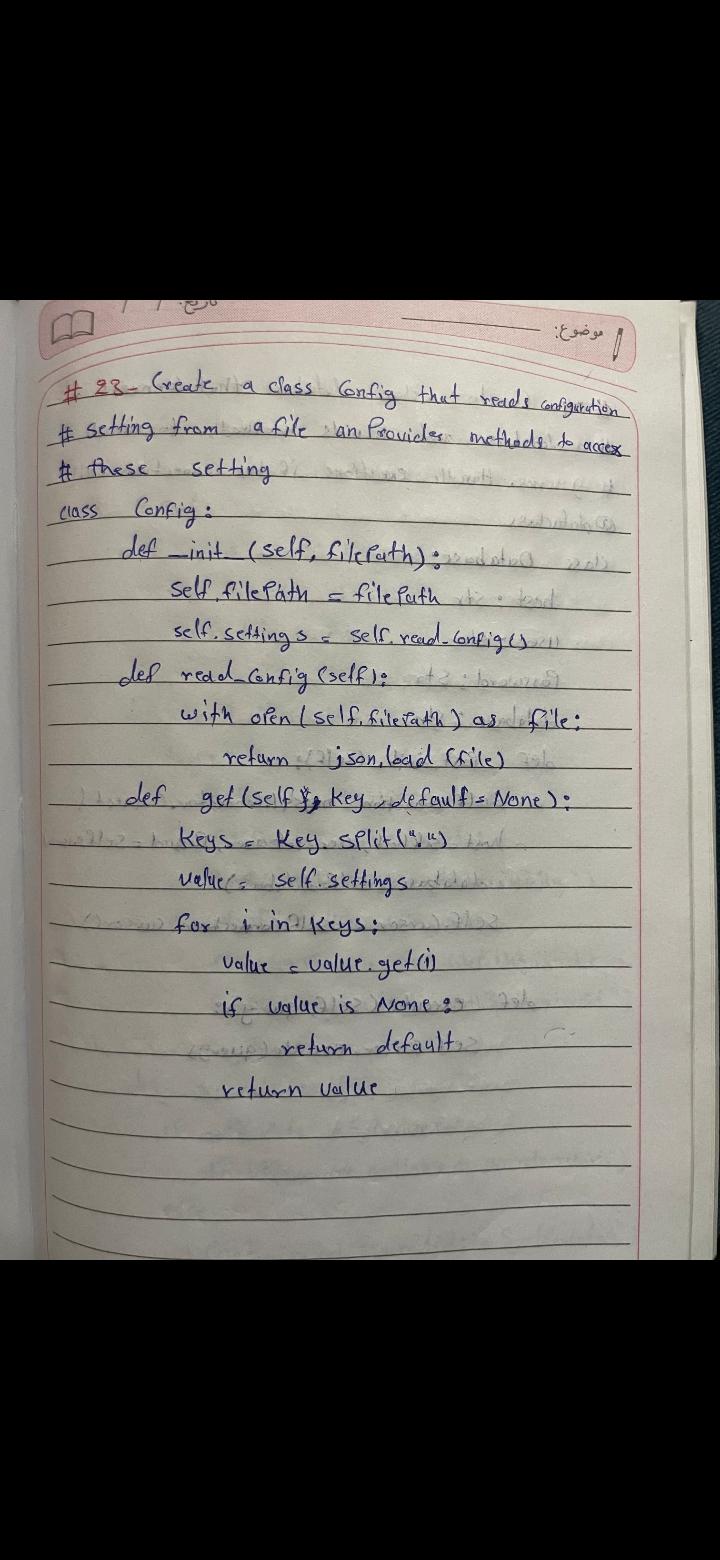 تاریخ: / /
موضوع:
# 23- Create a class Config that reads configuration
# setting from a file an Provides methods to access
# these setting
class Config:
def _init_(self, filePath):
self.filePath = filePath
self.settings = self.read_Config()
def read_Config(self):
with open(self.filePath) as file:
return json.load(file)
def get(self, Key, default = None):
Keys = Key.split(".")
value = self.settings
for i in Keys:
value = value.get(i)
if value is None:
return default
return value